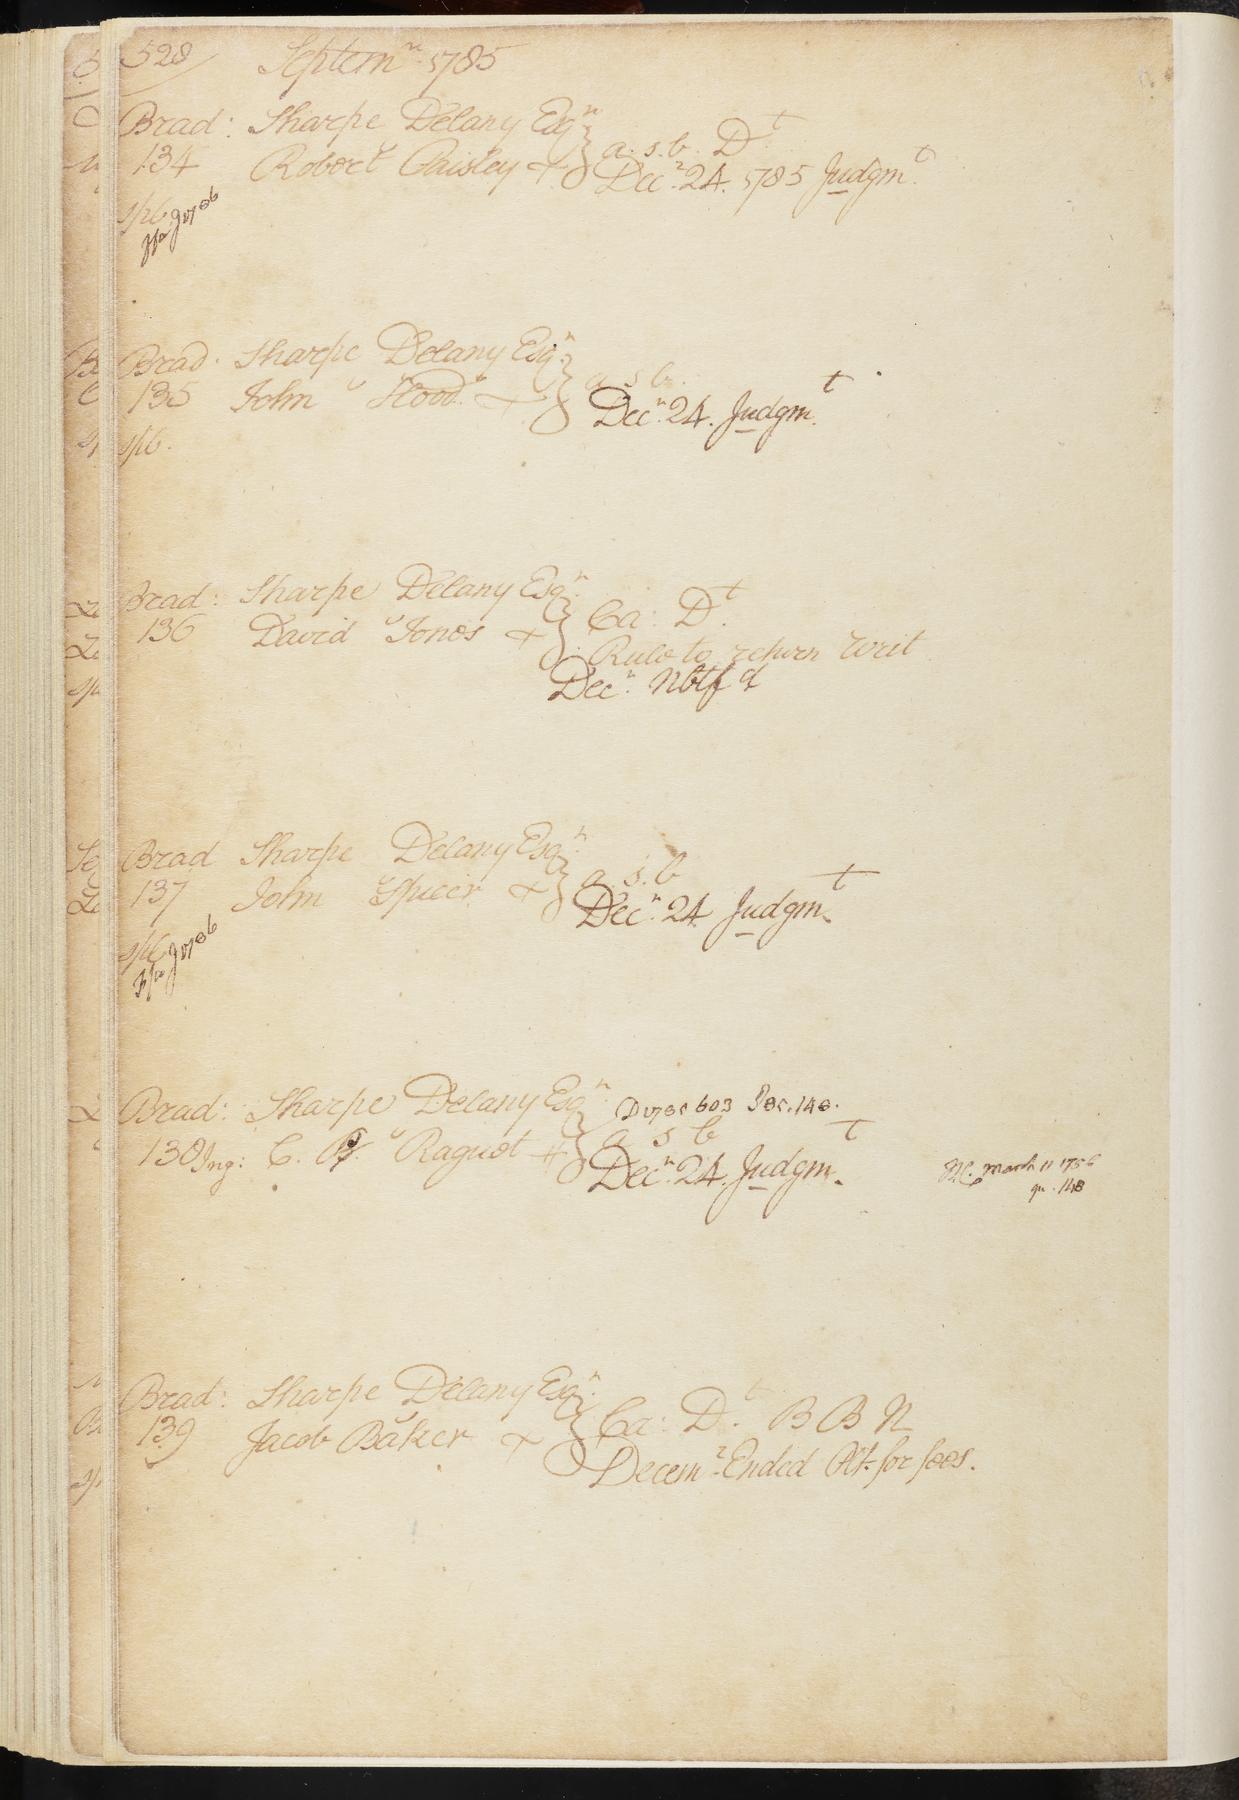 528 Septemr. 1785
Brad: Sharpe Delany Esqr.
134 Robert Paisley + } a. s. b. Dt.
Decr. 24. 1785 Judgmt.
spb
Brad. Sharpe Delany Esqr.
135 John Hood + } a s b.
Decr. 24. Judgmt.
spb.
Brad: Sharpe Delany Esqr.
136 David Jones + } Ca: Dt.
Rule to return Writ
Decr.
Brad Sharpe Delany Esqr.
137 John Spicer + } a. s. b
Decr. 24 Judgmt.
spb
Brad: Sharpe Delany Esqr.
138 Ing: C. P. Raguet + } a s b
Decr. 24. Judgmt.
March 11 1786
148
Brad: Sharpe Delany Esqr.
139 Jacob Baker + } Ca: Dt. B B N
Decemr. Ended Plt. for fees.